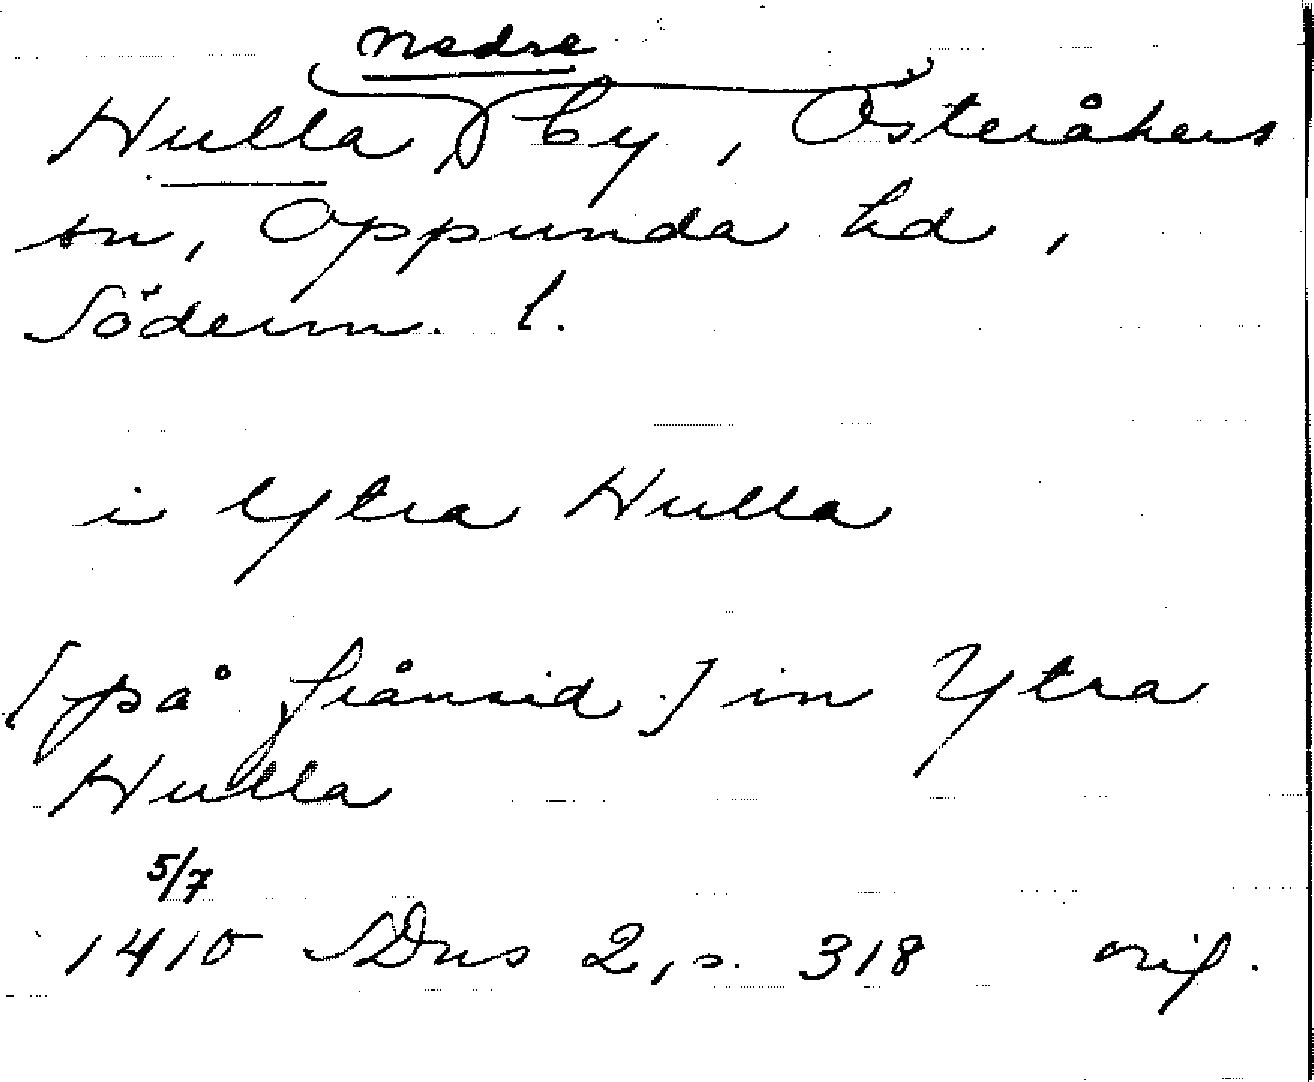 Nedre
Hulla, by, Österåkers
sn, Oppunda hd,
Söderm. l.
i Ytra Hulla
[på frånsid.] in Ytra
Hulla
5/7
1410 SDns 2, s. 318 orig.